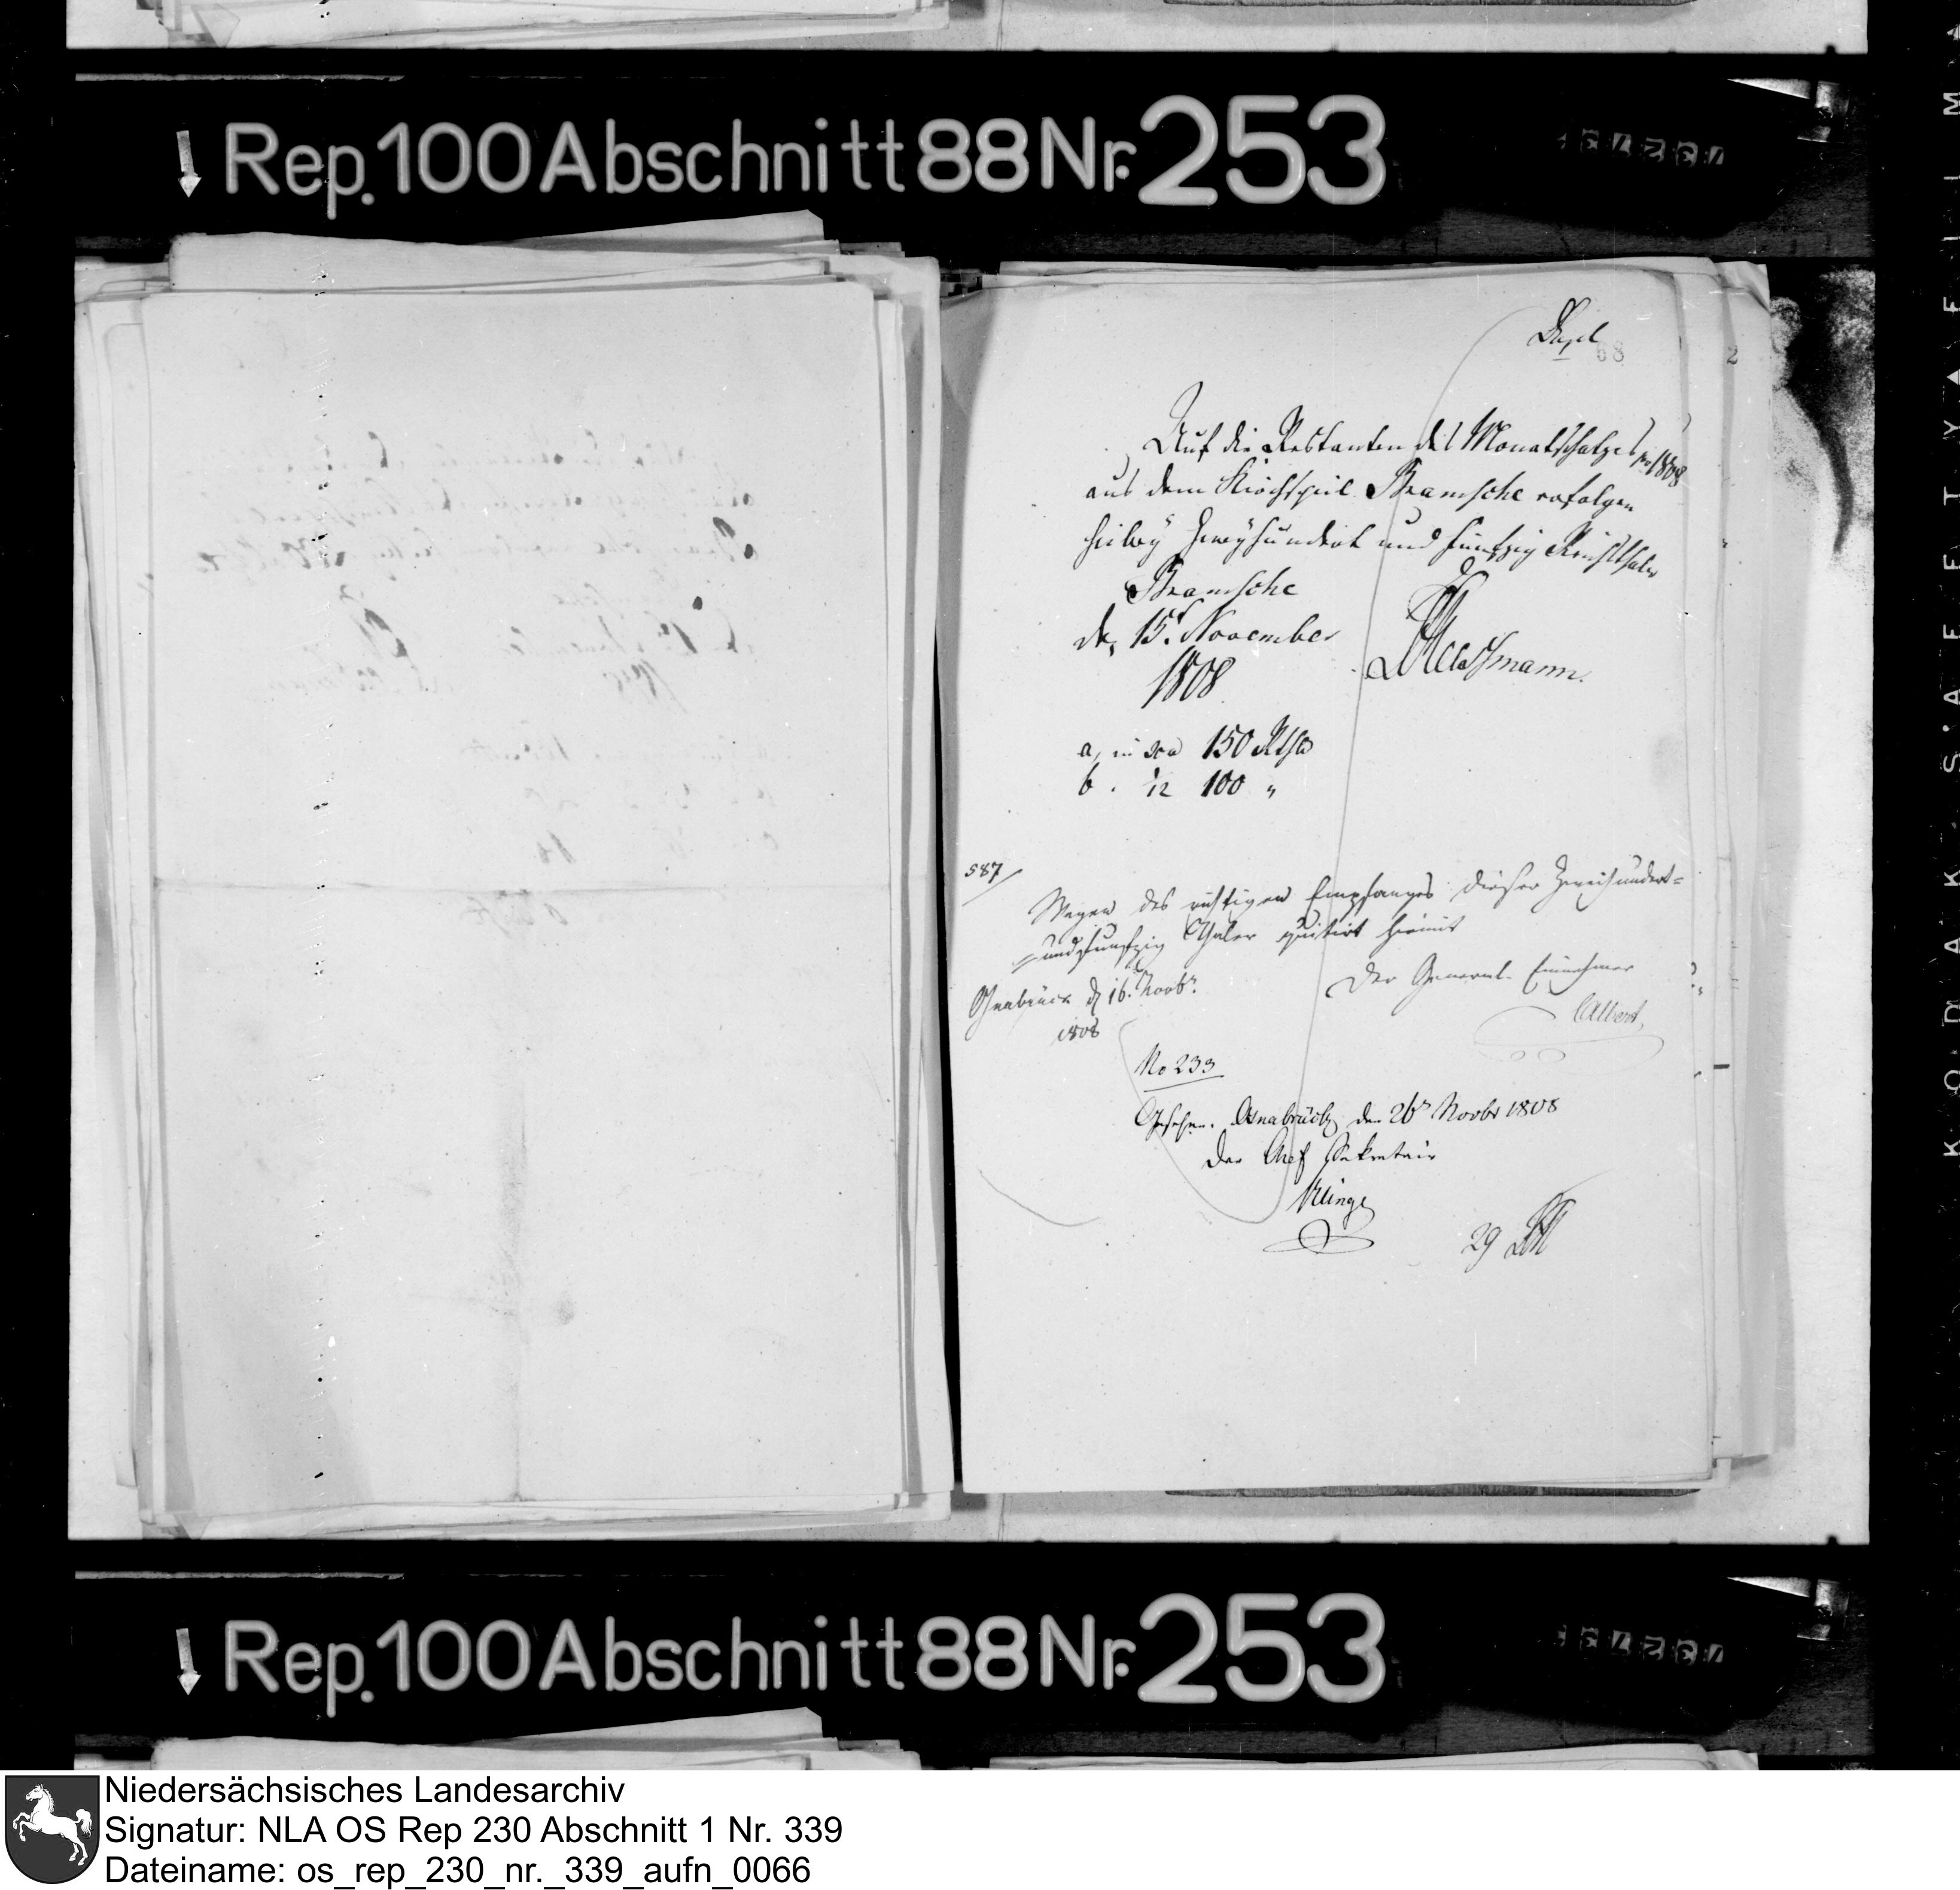 Rep. 100 Abschnitt 88 Nr. 253
Dupl
68
2
Auf die Restanten des Monatschatzes pro 1808
aus dem Kirchspiel Bramsche erfolgen
hiebey Zweyhundert und funfzig Reichsthaler
Bramsche
den 15t November
1808
a, in 150 Rthlr
b. 1/12 100 "
587
Wegen des richtigen Empfanges dieser Zweihundert=
=undfunfzig Thaler quitirt hiemit
Osnabrück d 16. Novbr.
1808
Der General-Einnehmer
Albert
No 233
Gesehen. Osnabrück den 26t Novbr 1808
Der Chef Sekretair
Klinge
29
Rep. 100 Abschnitt 88 Nr. 253
KODAK SAFETY FILM
Niedersächsisches Landesarchiv
Signatur: NLA OS Rep 230 Abschnitt 1 Nr. 339
Dateiname: os_rep_230_nr._339_aufn_0066